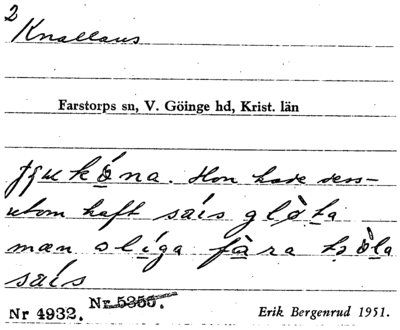 2
Knallaus
Farstorps sn, V. Göinge hd, Krist. län
Hon hade dess-
utom haft saís glǫ̀ta
mæn slíga fàra
saís
Nr 4932. Nr 5355.
Erik Bergenrud 1951.